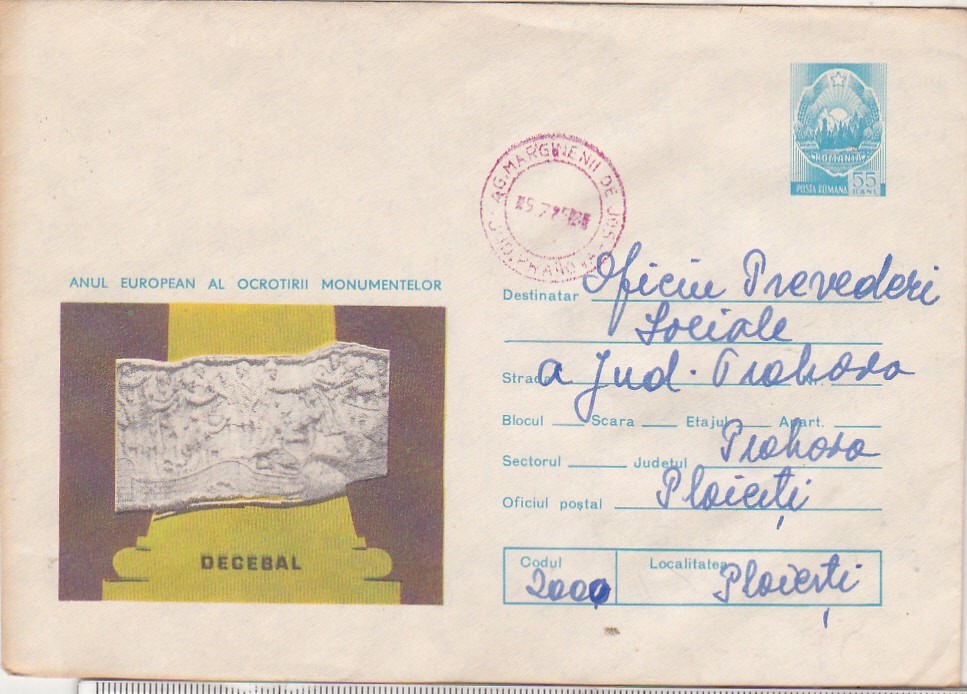 ROMANIA
POSTA ROMANA 55 BANI
AG. MARGINENII DE JOS
JUD. PRAHOVA
ANUL EUROPEAN AL OCROTIRII MONUMENTELOR
DECEBAL
Destinatar Oficiu Prevederi
Sociale
Strada a Jud. Prahova
Blocul Scara Etajul Apart.
Sectorul Judetul Prahova
Oficiul poștal Ploiești
Codul 2000 Localitatea Ploiești